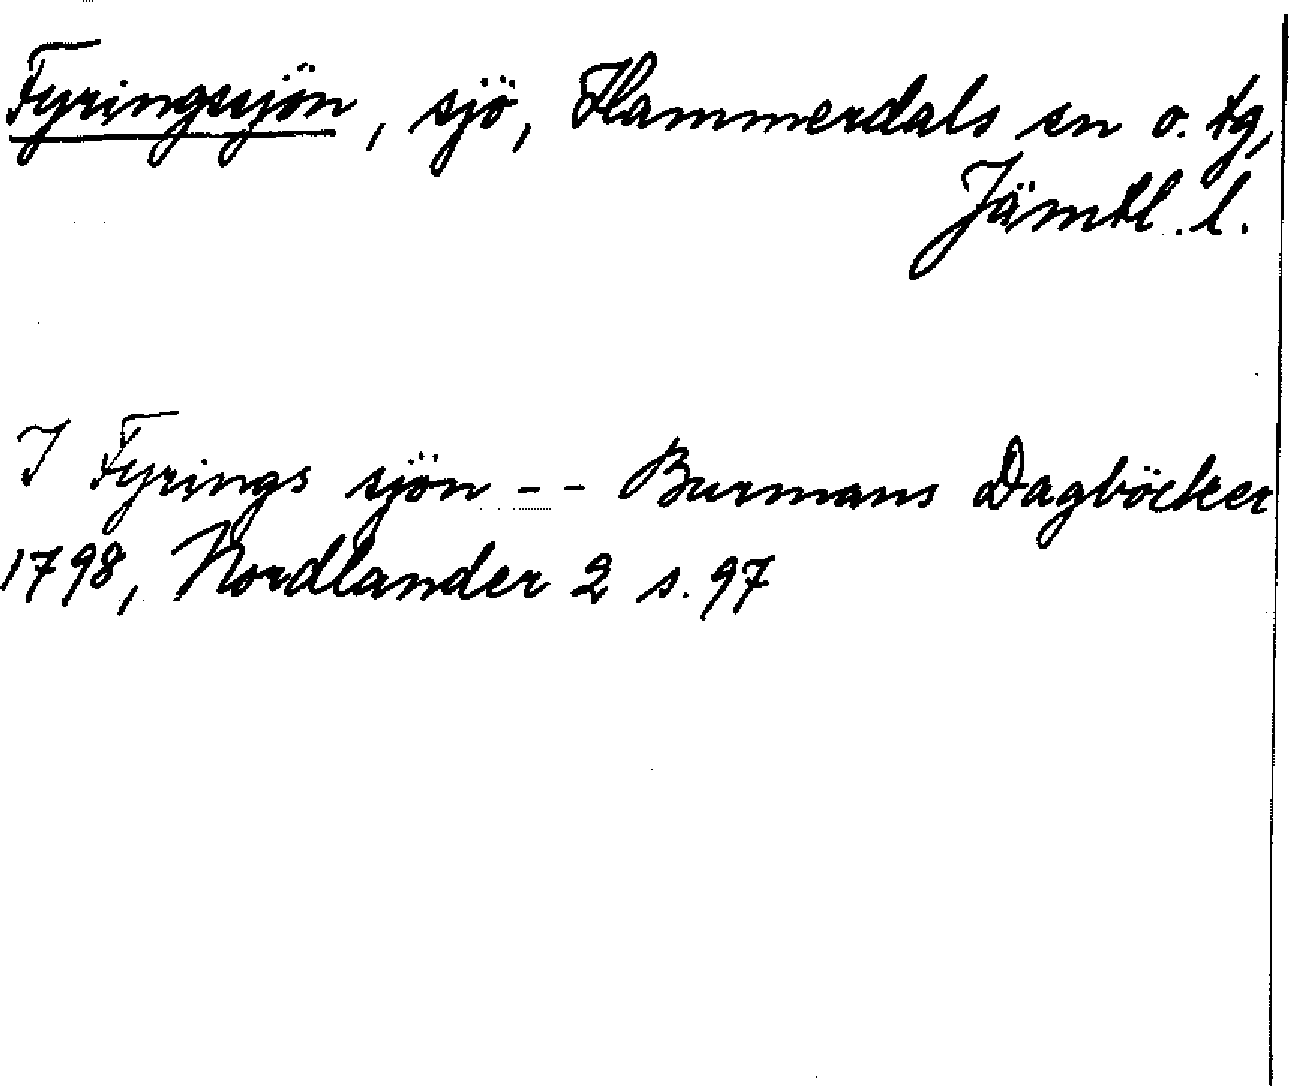 Fyringssjön, sjö, Hammerdals sn o. tg,
Jämtl. l.
I Fyrings sjön -- Burmans Dagböcker
1798, Nordlander 2 s. 97